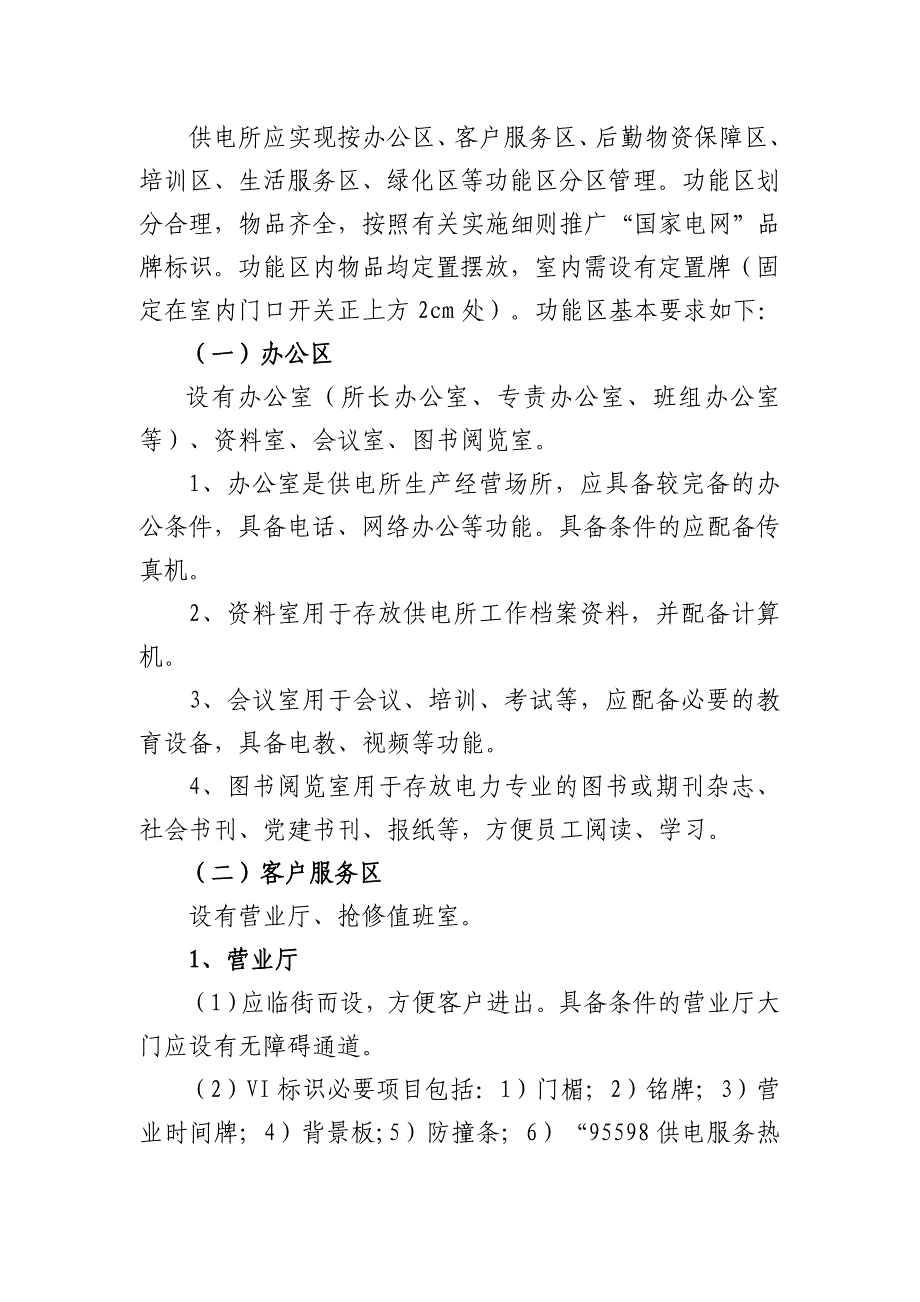 供电所应实现按办公区、客户服务区、后勤物资保障区、
培训区、生活服务区、绿化区等功能区分区管理。功能区划
分合理，物品齐全，按照有关实施细则推广“国家电网”品
牌标识。功能区内物品均定置摆放，室内需设有定置牌（固
定在室内门口开关正上方 2cm 处）。功能区基本要求如下：
（一）办公区
设有办公室（所长办公室、专责办公室、班组办公室
等）、资料室、会议室、图书阅览室。
1、办公室是供电所生产经营场所，应具备较完备的办
公条件，具备电话、网络办公等功能。具备条件的应配备传
真机。
2、资料室用于存放供电所工作档案资料，并配备计算
机。
3、会议室用于会议、培训、考试等，应配备必要的教
育设备，具备电教、视频等功能。
4、图书阅览室用于存放电力专业的图书或期刊杂志、
社会书刊、党建书刊、报纸等，方便员工阅读、学习。
（二）客户服务区
设有营业厅、抢修值班室。
1、营业厅
（1）应临街而设，方便客户进出。具备条件的营业厅大
门应设有无障碍通道。
（2）VI 标识必要项目包括：1）门楣；2）铭牌；3）营
业时间牌；4）背景板；5）防撞条；6）“95598 供电服务热